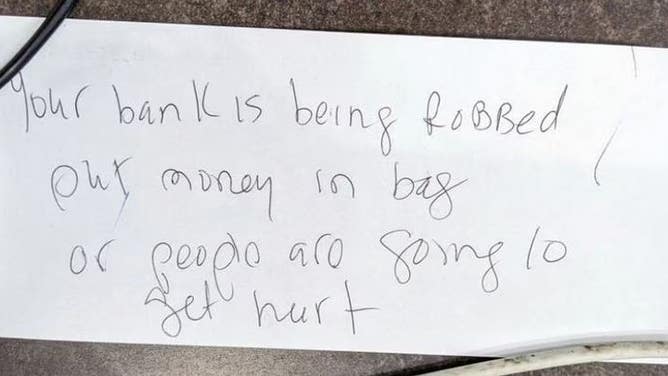 Your bank is being RoBBed
put money in bag
or people are going to
get hurt